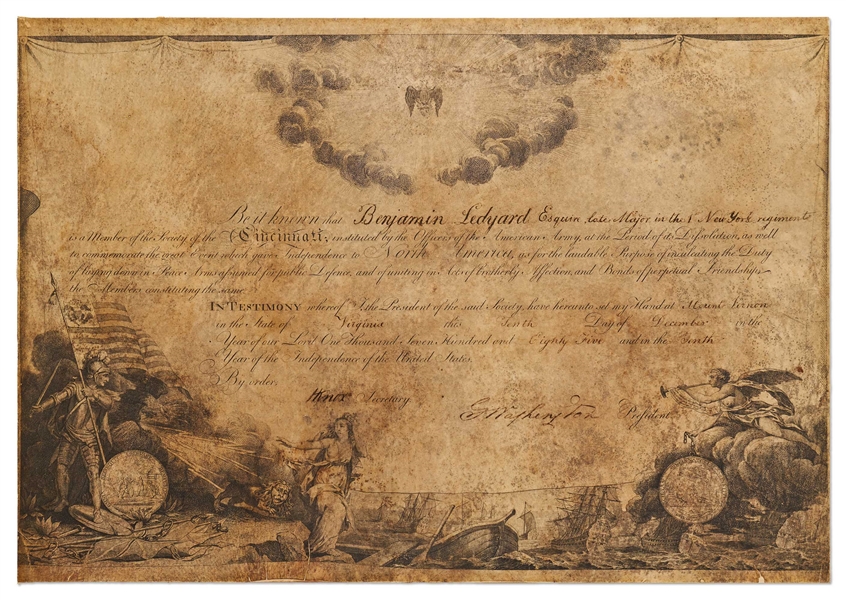 Be it known that Benjamin Ledyard Esquire late Major in the 1 New York regiments
is a Member of the Society of the Cincinnati; instituted by the Officers of the American Army, at the Period of its Dissolution, as well
to commemorate the great Event which gave Independence to North America, as for the laudable Purpose of inculcating the Duty
of laying down in Peace Arms assumed for public Defence, and of uniting in Acts of brotherly Affection, and Bonds of perpetual Friendship,
the Members constituting the same.
In Testimony whereof I, the President of the said Society, have hereunto set my Hand at Mount Vernon
in the State of Virginia this Tenth Day of December in the
Year of our Lord One Thousand Seven Hundred and Eighty Five and in the Tenth
Year of the Independence of the United States.
By order,
HKnox Secretary.
GWashington President.